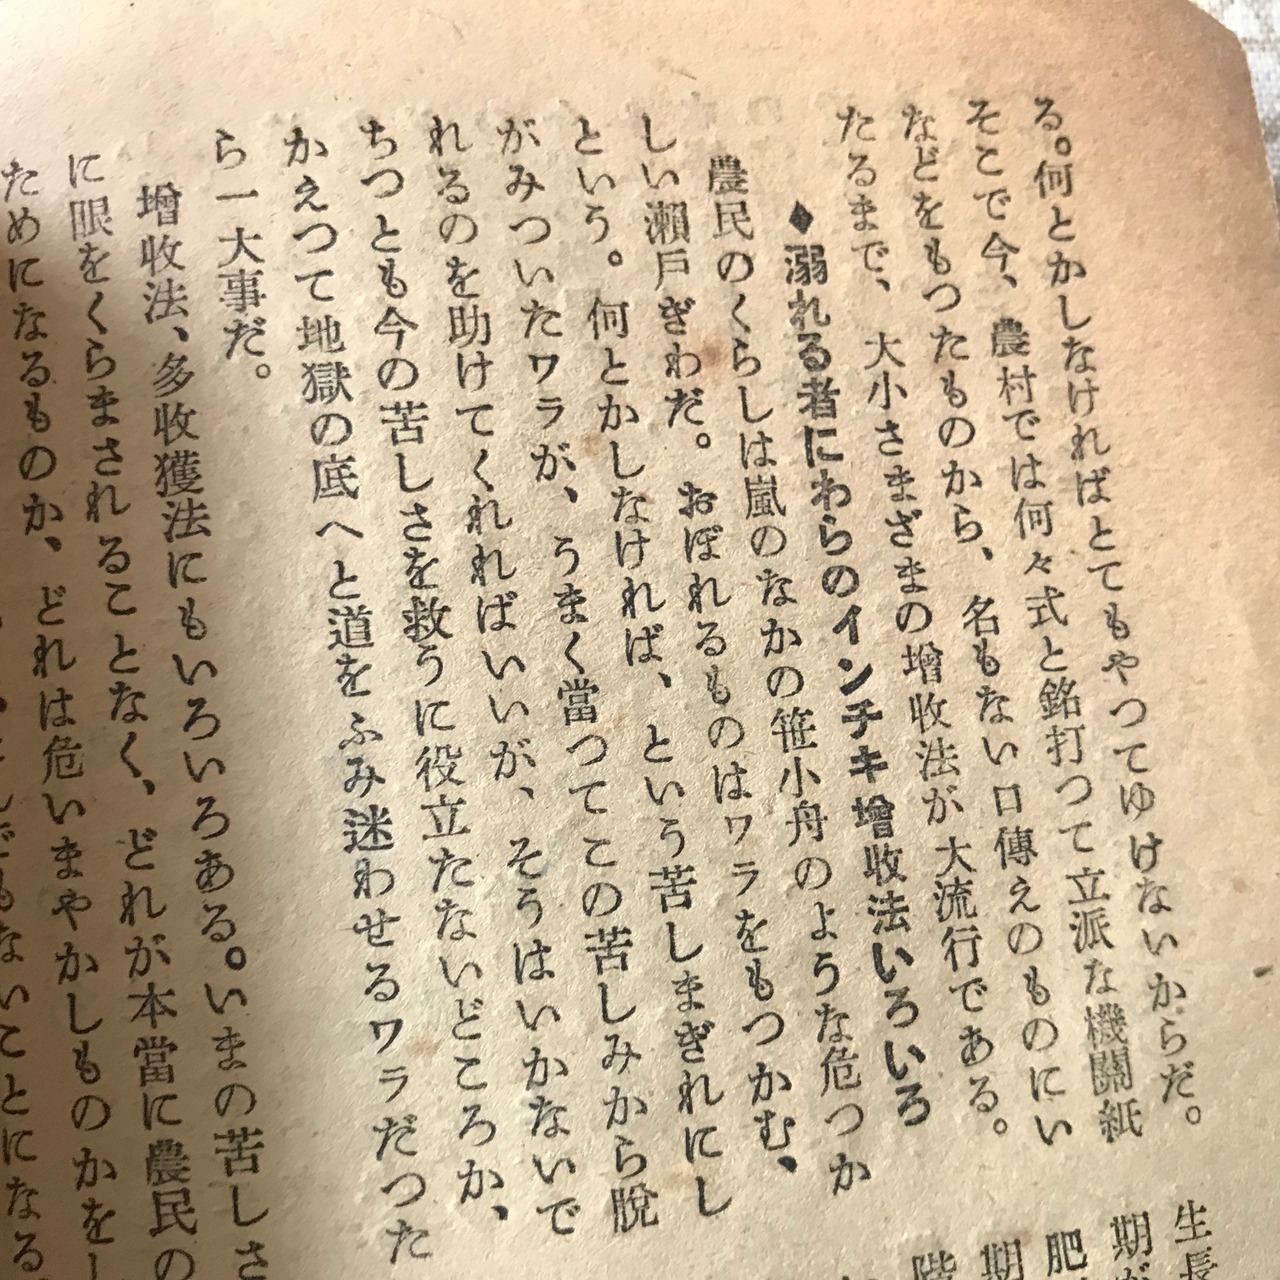 る。何とかしなければとてもやつてゆけないからだ。
そこで今、農村では何々式と銘打つて立派な機關紙
などをもつたものから、名もない口傳えのものにい
たるまで、大小さまざまの增收法が大流行である。
◆溺れる者にわらのインチキ增收法いろいろ
農民のくらしは嵐のなかの笹小舟のような危つか
しい瀨戸ぎわだ。おぼれるものはワラをもつかむ、
という。何とかしなければ、という苦しまぎれにし
がみついたワラが、うまく當つてこの苦しみから脫
れるのを助けてくれればいいが、そうはいかないで
ちつとも今の苦しさを救うに役立たないどころか、
かえつて地獄の底へと道をふみ迷わせるワラだつた
ら一大事だ。
增收法、多收獲法にもいろいろある。いまの苦しさ
に眼をくらまされることなく、どれが本當に農民の
ためになるものか、どれは危いまやかしものかを
ないことになる
生長
期
肥
期
階